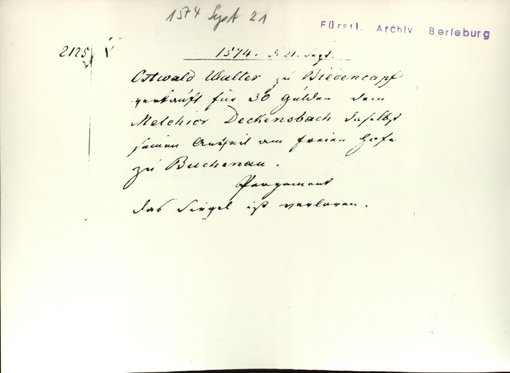 1574 Sept 21
Fürstl. Archiv Berleburg
2125 V
1574. d. 21. Sept.
Ostwald Waller zu Biedencapf
verkauft für 30 Gulden dem
Melchior Deckensbach daselbst
seinen Antheil am freien Hofe
zu Buchenau.
Pergament
das Siegel ist verloren.